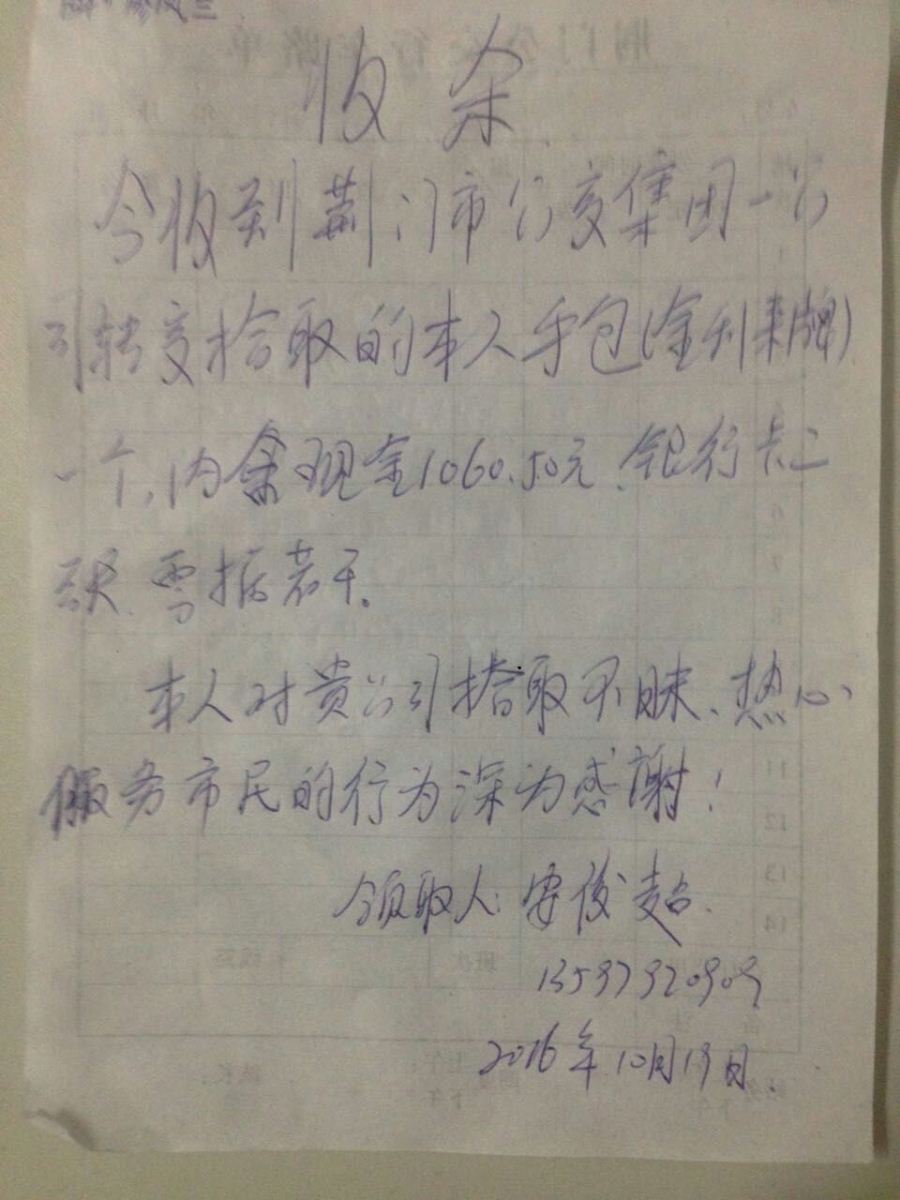 收条
今收到荆门市公交集团一公
司转交拾取的本人手包(金利来牌)
一个,内含现金1060.50元、银行卡二
张、票据若干。
本人对贵公司拾取不昧、热心
服务市民的行为深为感谢!
领取人:李俊超.
13597920909
2016年10月19日.
11
12
13
14